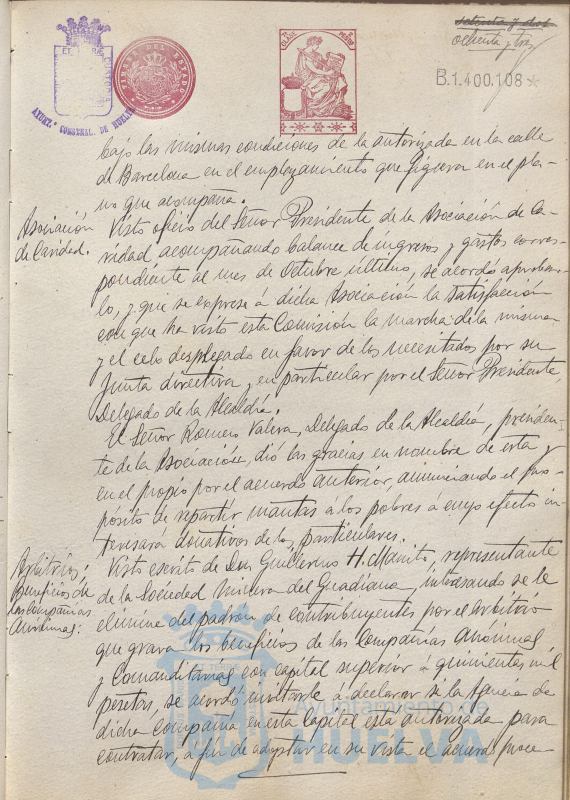 setenta y dos
ochenta y tres
B.1.400.108*
AYUNT.º CONSTNAL. DE HUELVA
TIMBRE DEL ESTADO
bajo las mismas condiciones de la autorizada en la calle
de Barcelona en el emplazamiento que figura en el pla-
no que acompaña.
Asociación
de Caridad.
Visto oficio del Señor Presidente de la Asociación de Ca-
ridad acompañando balance de ingresos y gastos corres-
pondiente al mes de Octubre último, se acordó aprobar-
lo, y que se exprese á dicha Asociación la satisfacción
con que ha visto esta Comisión la marcha de la misma
y el celo desplegado en favor de los necesitados por su
Junta directiva y en particular por el Señor Presidente,
Delegado de la Alcaldía.
El Señor Romero Valera, Delegado de la Alcaldía, presiden-
te de la Asociación, dió las gracias en nombre de esta y
en el propio por el acuerdo anterior, anunciando el pro-
pósito de repartir mantas á los pobres á cuyo efecto in-
teresara donativos de los particulares.
Arbitrios:
beneficios de
las Compañías
Anónimas:
Visto escrito de Don Guillermo H. representante
de la Sociedad minera del Guadiana, interesando se le
elimine del padrón de contribuyentes por el arbitrio
que grava los beneficios de las Compañías Anónimas
y Comanditarias con capital superior á quinientas mil
pesetas, se acordó invitarle á declarar si la Agencia de
dicha Compañía en esta Capital esta autorizada para
contratar, á fin de adoptar en su vista el acuerdo proce-
Ayuntamiento de
HUELVA